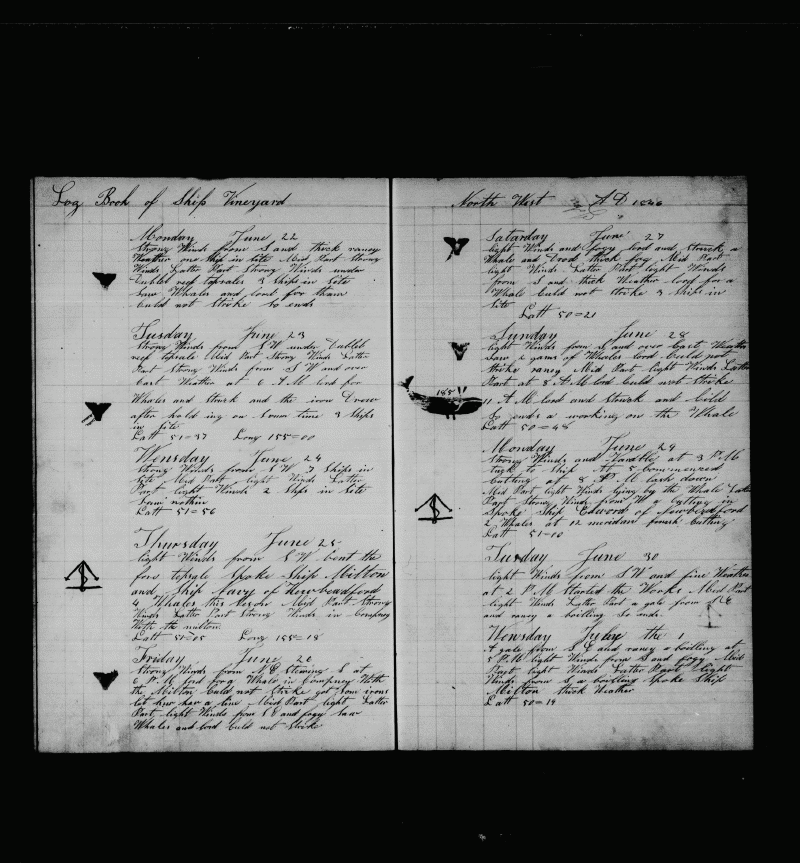 Log Book of Ship Vineyard
Monday June 22
Strong Winds from S and thick raney
Weather one ship in Site Mid Part Strong
Winds Latter Part Strong Winds under
Dubleb reef topsales 3 Ships in Site
Saw Whales and lord for tham
Culd not Strike So ends
Tusday June 23
Strong Winds from S W under Dubleb
reef topsale Mid Part Strong Winds Latter
Part Strong Winds from S W and over
Cart Weather at 6 A M lord for
Whales and Struk and the iron Drew
after hold ing on Som time 3 Ships
in Site
Latt 51=37 Long 155=00
Wensday June 24
Strong Winds from S W 7 Ships in
Site Mid Part light Winds Latter
Part light Winds 2 Ships in Site
Saw nothin
Latt 51=56
Thursday June 25
light Winds from S W bent the
fore topsale Spoke Ship Milton
and Ship Navy of Newbeadford
4 Whales this Seson Mid Part Strong
Winds Latter Part Strong Winds in Compney
With the milton
Latt 51=05 Long 155=18
Friday June 26
Strong Winds from S W Stering S at
6 P M find frog Whale in Compney With
the Milton Culd not Strike got Som irons
let hur har a line Mid Part light Latter
Part light Winds from S E and fogy Saw
Whales and lord Culd not Strike
North West A D 1846
Satarday June 27
light Winds and fogy lord and Struck a
Whale and Drod thick fog Mid Part
light Winds Latter Part light Winds
from S and thick Weather lord for a
Whale Culd not Strike 3 Ships in
Site
Latt 50=21
Sunday June 28
light Winds from S and over Cart Weather
Saw 2 gams of Whales lord Culd not
Strike raney Mid Part light Winds Latter
Part at 8 A M lord Culd not Strike
11 A M lord and Struk and Cild
So ends a working on the Whale
Latt 50=48
Monday June 29
Strong Winds and at 3 P M
tuck to Ship At 5 Commenced
Cutting at 8 P M lash down
Mid Part light Winds lying by the Whale Latter
Part Strong Winds from W a Cutting in
Spoke Ship Edword of Newbeadford
2 Whales at 12 meridan finish Cutting
Latt 51=10
Tusday June 30
light Winds from S W and fine Weather
at 2 P M Started the Works Mid Part
light Winds Latter Part a gale from S E
and raney a boilling So ends
Wensday July the 1
A gale from S E and raney a boilling at
5 P M light Winds from S and fogy Mid
Part light Winds Latter Part light
Winds from S a boilling Spoke Ship
Milton thick Weather
Latt 50=19